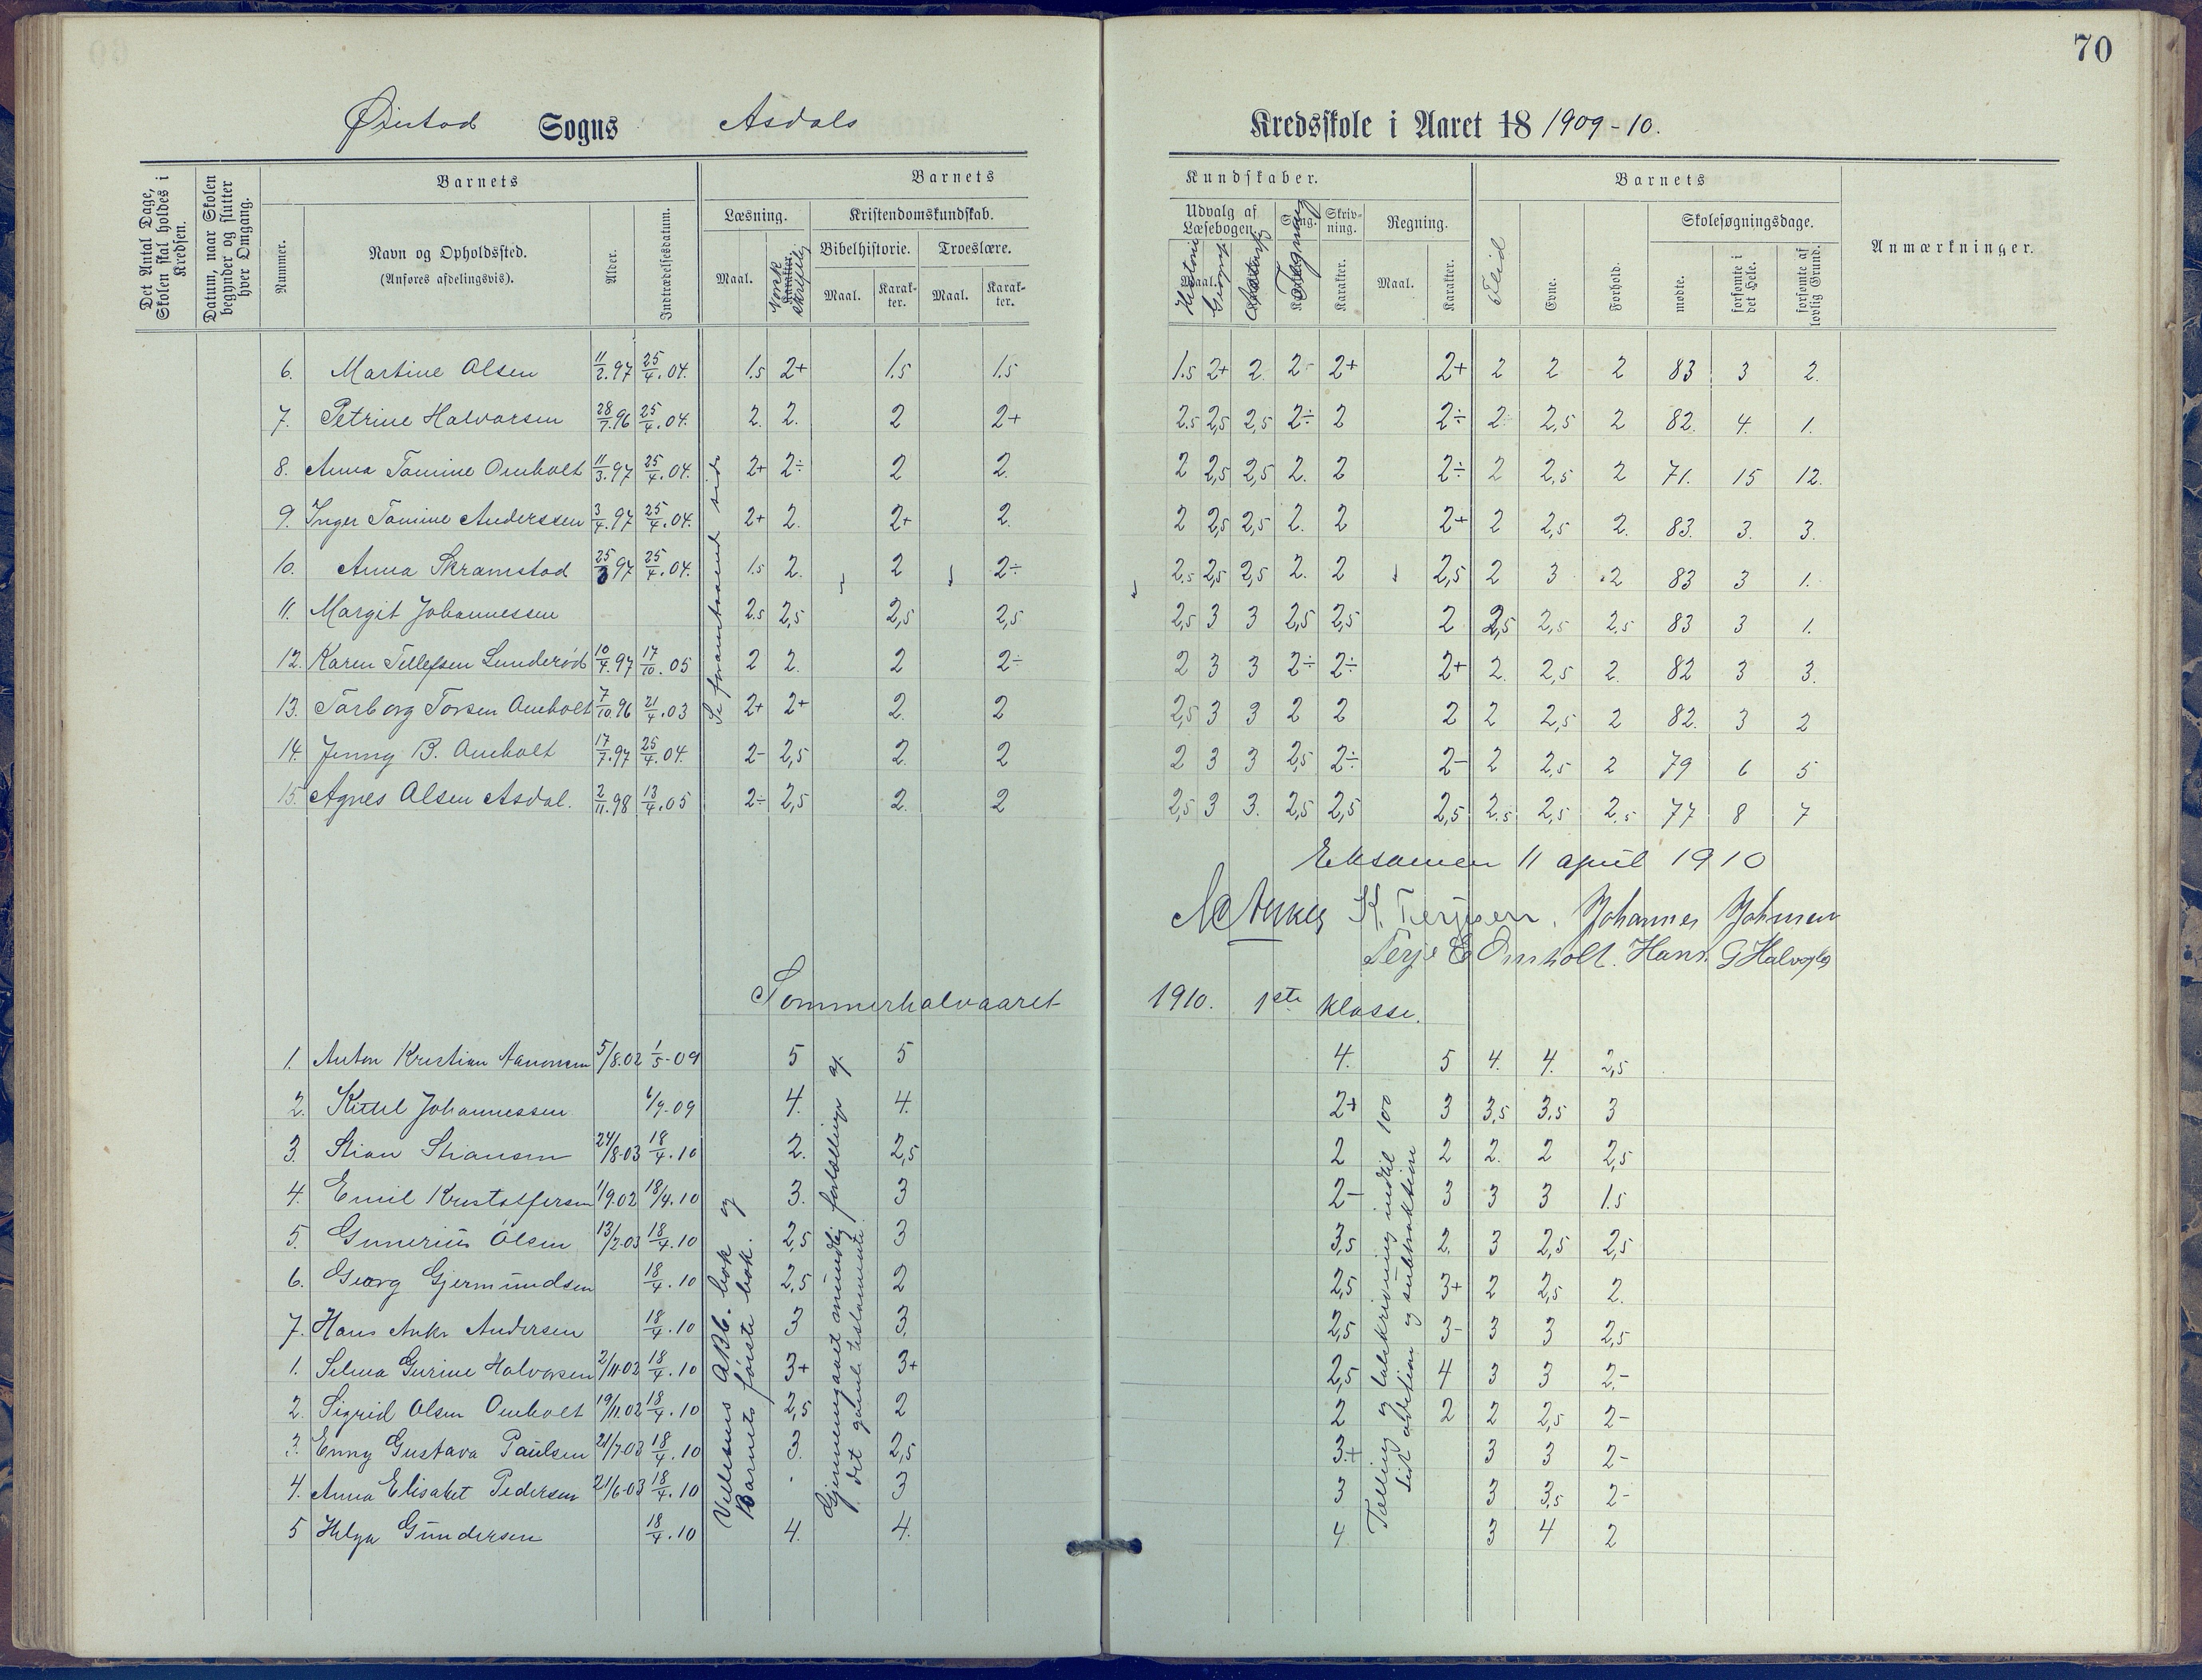 70
Øiestad Sogns Asdals Kredsskole i Aaret 18 1909-10.
Det Antal Dage, Skolen skal holdes i Kredsen.
Datum, naar Skolen begynder og slutter hver Omgang.
Barnets
Nummer.
Navn og Opholdssted.
(Anføres afdelingsvis).
Alder.
Indtrædelsesdatum.
Barnets Kundskaber.
Læsning.
Maal.
Norsk skriftlig
Karakter.
Kristendomskundskab.
Bibelhistorie.
Maal.
Karakter.
Troeslære.
Maal.
Karakter.
Udvalg af Læsebogen.
Maal.
Historie
Geografi
Sang.
Tegning
Skrivning.
Karakter.
Regning.
Maal.
Karakter.
Barnets
Flid
Evne.
Forhold.
Skolesøgningsdage.
mødte.
forsømte i det Hele.
forsømte af lovlig Grund.
Anmærkninger.
6. Martine Olsen 11/2.97 25/4.04. 1.5 2+ 1.5 1.5 1.5 2+ 2. 2- 2+ 2+ 2 2 2 83 3 2.
7. Petrine Halvorsen 28/7.96 25/4.04. 2. 2. 2 2+ 2.5 2,5 2,5 2÷ 2 2÷ 2 2,5 2 82. 4. 1.
8. Anna Tomine Omholt 11/3.97 25/4.04. 2+ 2÷ 2 2. 2 2,5 2,5 2. 2 2÷ 2 2,5 2 71. 15 12.
9. Inger Tomine Anderssen 3/4.97 25/4.04. 2+ 2. 2+ 2. 2 2,5 2,5 2. 2 2+ 2 2,5 2. 83. 3. 3.
10. Anna Skramstad 25/3 97 25/4.04. 1.5 2. 2 2÷ 2.5 2,5 2,5 2. 2 2,5 2 3 2 83 3 1.
11. Margit Johannessen 2.5 2,5 2,5 2,5 2,5 3 3 2,5 2,5 2 2,5 2,5 2.5 83 3 1.
12. Karen Tellefsen Lunderød 10/4.97 17/10.05 2 2. 2 2÷ 2 3 3 2÷ 2÷ 2+ 2. 2,5 2. 82 3 3.
13. Torborg Torsen Omholt 7/10.96 21/4.03 2+ 2+ 2. 2 2,5 3 3 2 2 2 2 2,5 2 82. 3 2
14. Jenny B. Omholt 17/7.97 25/4.04. 2- 2,5 2. 2 2 3 3 2,5 2÷ 2- 2 2,5 2 79 6 5
15. Agnes Olsen Asdal. 2/11.98 13/4.05 2÷ 2,5 2. 2 2,5 3 3. 2,5 2,5 2,5 2.5 2,5 2.5 77 8 7
Se foranstaaend side
Eksamen 11 april 1910
K. Terjesen. Johannes Johnsen
Terje E Omholt. Hans G Halvorsen
Sommerhalvaaret 1910. 1ste klasse.
1. Anton Kristian Aanonsen 5/8.02 1/5-09 5 5 4. 5 4. 4. 2,5
2. Kittel Johannessen 6/9.09 4. 4. 2+ 3 3,5 3,5 3
3. Stian Stiansen 24/8-03 18/4.10 2. 2,5 2 2 2. 2 2,5
4. Emil Kristoffersen 1/9.02 18/4.10 3. 3 2- 3 3 3 1.5
5. Gunerius Olsen 13/2-03 18/4.10 2,5 3 3,5 2. 3 2,5 2,5
6. Georg Gjermundsen 18/4.10 2,5 2 2,5 3+ 2 2,5 2.
7. Hans Anker Andersen 18/4.10 3 3. 2,5 3- 3 3 2,5
1. Selma Gurine Halvorsen 2/11-02 18/4.10 3+ 3+ 2,5 4 3 3 2-
2. Sigrid Olsen Omholt 19/11.02 18/4.10 2,5 2 2 2 2 2,5 2-
3. Enny Gustava Paulsen 21/7-03 18/4.10 3. 2,5 3+ 3 3 2-
4. Anna Elisabet Pedersen 21/6-03 18/4.10 3 3 3 3,5 2-
5 Helga Gundersen 18/4.10 4. 4. 4 3 4 2
ABC. bok og
Barnets første bok.
Gjennemgaaet mundlig fortællinger af
det gamle testamente.
Tælling og talskrivning indtil 100
Lidt addition og subtraktion